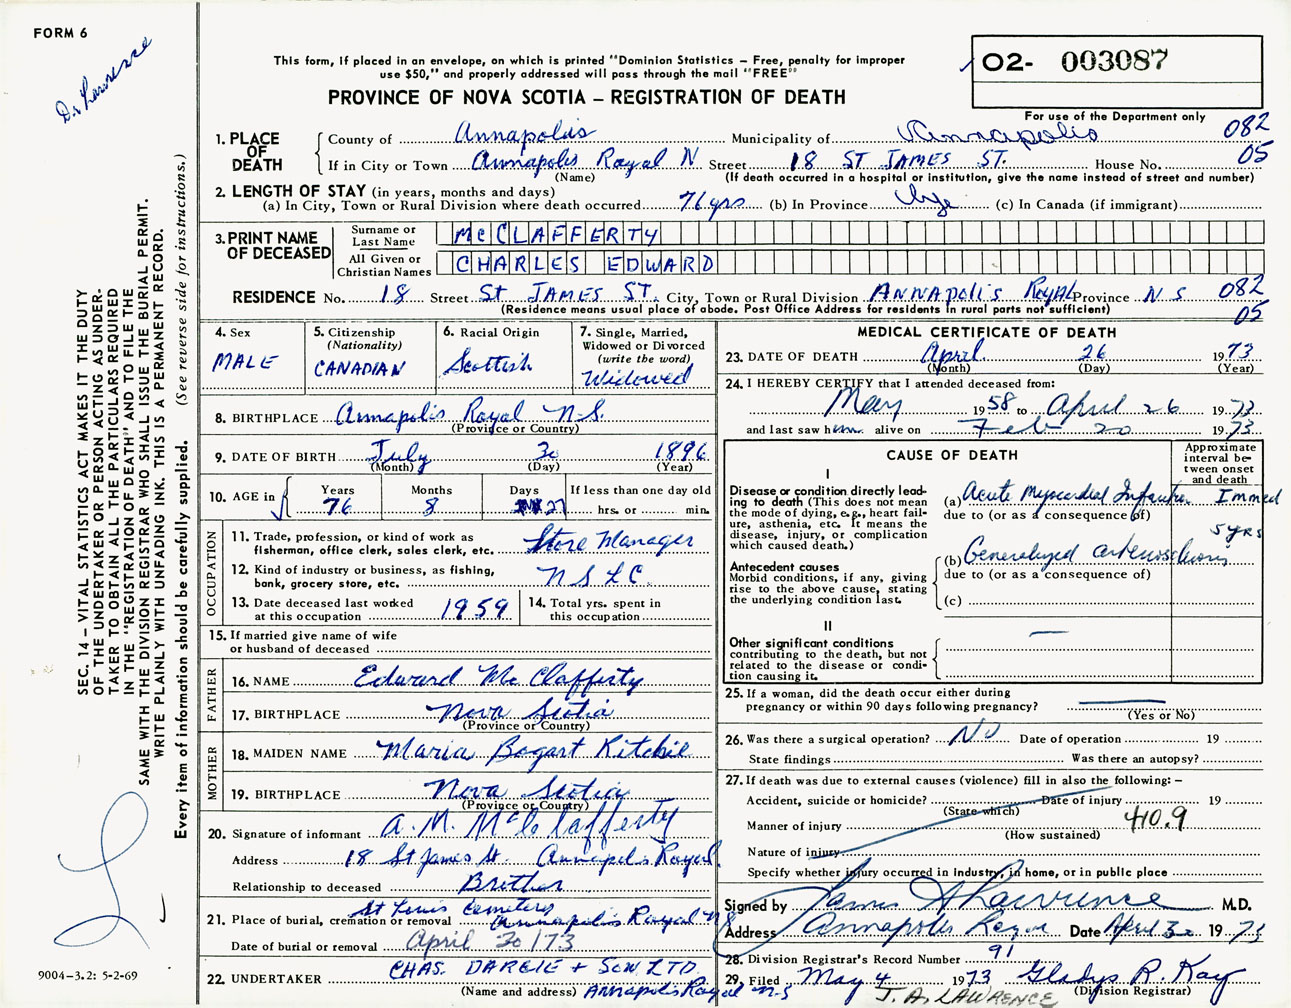 FORM 6
Dr Lawrence
This form, if placed in an envelope, on which is printed "Dominion Statistics – Free, penalty for improper
use $50," and properly addressed will pass through the mail "FREE"
O2- 003087
PROVINCE OF NOVA SCOTIA – REGISTRATION OF DEATH
For use of the Department only
1. PLACE OF DEATH County of Annapolis Municipality of Annapolis 082
If in City or Town Annapolis Royal N Street 18 ST JAMES ST. House No. 05
(Name) (If death occurred in a hospital or institution, give the name instead of street and number)
2. LENGTH OF STAY (in years, months and days)
(a) In City, Town or Rural Division where death occurred 76 yrs (b) In Province life (c) In Canada (if immigrant)
3. PRINT NAME OF DECEASED Surname or Last Name McCLAFFERTY
All Given or Christian Names CHARLES EDWARD
RESIDENCE No. 18 Street St JAMES ST. City, Town or Rural Division ANNAPOLIS ROYAL Province N S 082
(Residence means usual place of abode. Post Office Address for residents in rural parts not sufficient) 05
4. Sex MALE
5. Citizenship (Nationality) CANADIAN
6. Racial Origin Scottish
7. Single, Married, Widowed or Divorced (write the word) Widowed
8. BIRTHPLACE Annapolis Royal N.S.
(Province or Country)
9. DATE OF BIRTH July 30 1896
(Month) (Day) (Year)
10. AGE in Years 76 Months 8 Days 27 If less than one day old hrs. or min.
OCCUPATION
11. Trade, profession, or kind of work as fisherman, office clerk, sales clerk, etc. Store Manager
12. Kind of industry or business, as fishing, bank, grocery store, etc. N S L C.
13. Date deceased last worked at this occupation 1959
14. Total yrs. spent in this occupation
15. If married give name of wife or husband of deceased
FATHER
16. NAME Edward McClafferty
17. BIRTHPLACE Nova Scotia
(Province or Country)
MOTHER
18. MAIDEN NAME Maria Bogart Ritchie
19. BIRTHPLACE Nova Scotia
(Province or Country)
20. Signature of informant A. M. McClafferty
Address 18 St James St. Annapolis Royal
Relationship to deceased Brother
21. Place of burial, cremation or removal St Louis Cemetery Annapolis Royal NS
Date of burial or removal April 30/73
22. UNDERTAKER CHAS. DARGIE + SON LTD
(Name and address) Annapolis Royal N-S
MEDICAL CERTIFICATE OF DEATH
23. DATE OF DEATH April 26 1973
(Month) (Day) (Year)
24. I HEREBY CERTIFY that I attended deceased from:
May 1958 to April 26 1973
and last saw him alive on Feb 20 1973
CAUSE OF DEATH
Approximate interval between onset and death
I
Disease or condition directly leading to death (This does not mean the mode of dying, e.g., heart failure, asthenia, etc. It means the disease, injury, or complication which caused death.)
(a) Acute Myocardial Infarction Immed
due to (or as a consequence of)
5 yrs
Antecedent causes
Morbid conditions, if any, giving rise to the above cause, stating the underlying condition last.
(b) Generalized arteriosclerosis
due to (or as a consequence of)
(c)
II
Other significant conditions
contributing to the death, but not related to the disease or condition causing it.
25. If a woman, did the death occur either during
pregnancy or within 90 days following pregnancy?
(Yes or No)
26. Was there a surgical operation? No Date of operation 19
State findings Was there an autopsy?
27. If death was due to external causes (violence) fill in also the following: –
Accident, suicide or homicide? Date of injury 19
(State which)
Manner of injury 410.9
(How sustained)
Nature of injury
Specify whether injury occurred in industry, in home, or in public place
Signed by James A Lawrence M.D.
Address Annapolis Royal Date April 30 1973
28. Division Registrar's Record Number 91
29. Filed May 4 1973 Gladys R. Kay
(Division Registrar)
J. A. LAWRENCE
SEC. 14 – VITAL STATISTICS ACT MAKES IT THE DUTY
OF THE UNDERTAKER OR PERSON ACTING AS UNDER-
TAKER TO OBTAIN ALL THE PARTICULARS REQUIRED
IN THE "REGISTRATION OF DEATH" AND TO FILE THE
SAME WITH THE DIVISION REGISTRAR WHO SHALL ISSUE THE BURIAL PERMIT.
WRITE PLAINLY WITH UNFADING INK. THIS IS A PERMANENT RECORD.
Every item of information should be carefully supplied. (See reverse side for instructions.)
9004-3.2: 5-2-69